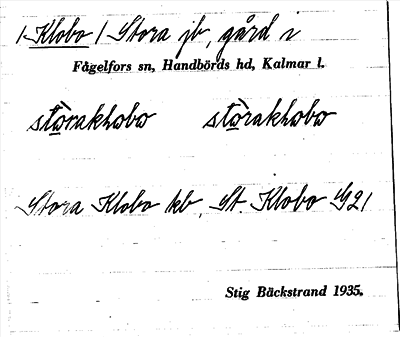 /Klobo/ Stora jb, gård i
Fågelfors sn, Handbörds hd, Kalmar l.
Stora Klobo kb, St. Klobo G21
Stig Bäckstrand 1935.